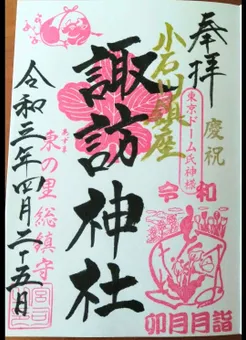 奉拝
慶祝
東京ドーム氏神様
令和
卯月月詣
小石川鎮座
諏訪神社
あずま
東の里総鎮守
令和三年四月二十五日